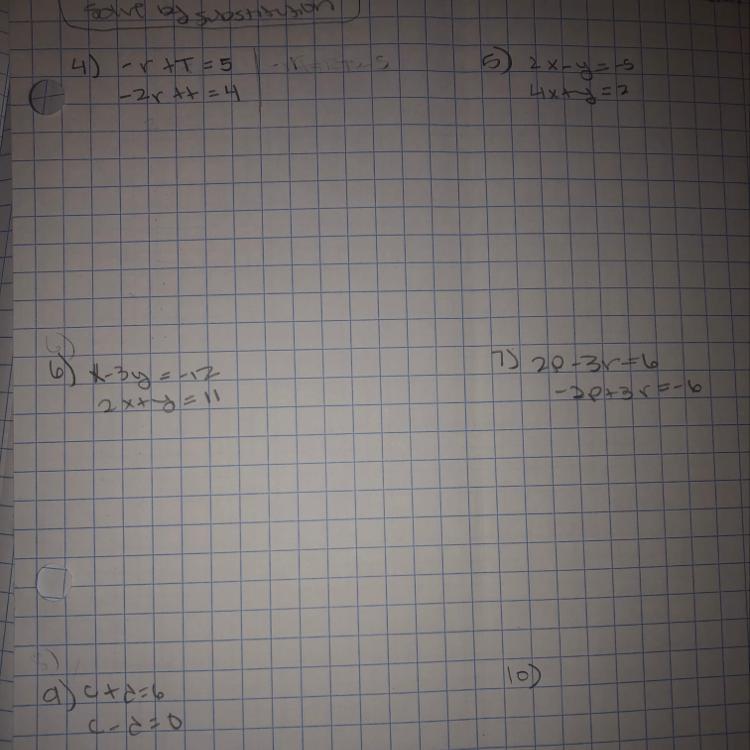 Solve by substitution
4) -r + T = 5
-2r + t = 4
5) 2x - y = -5
4x + y = 2
6) x - 3y = -12
2x + y = 11
7) 2p - 3r = 6
-2p + 3r = -6
9) c + d = 6
c - d = 0
10)